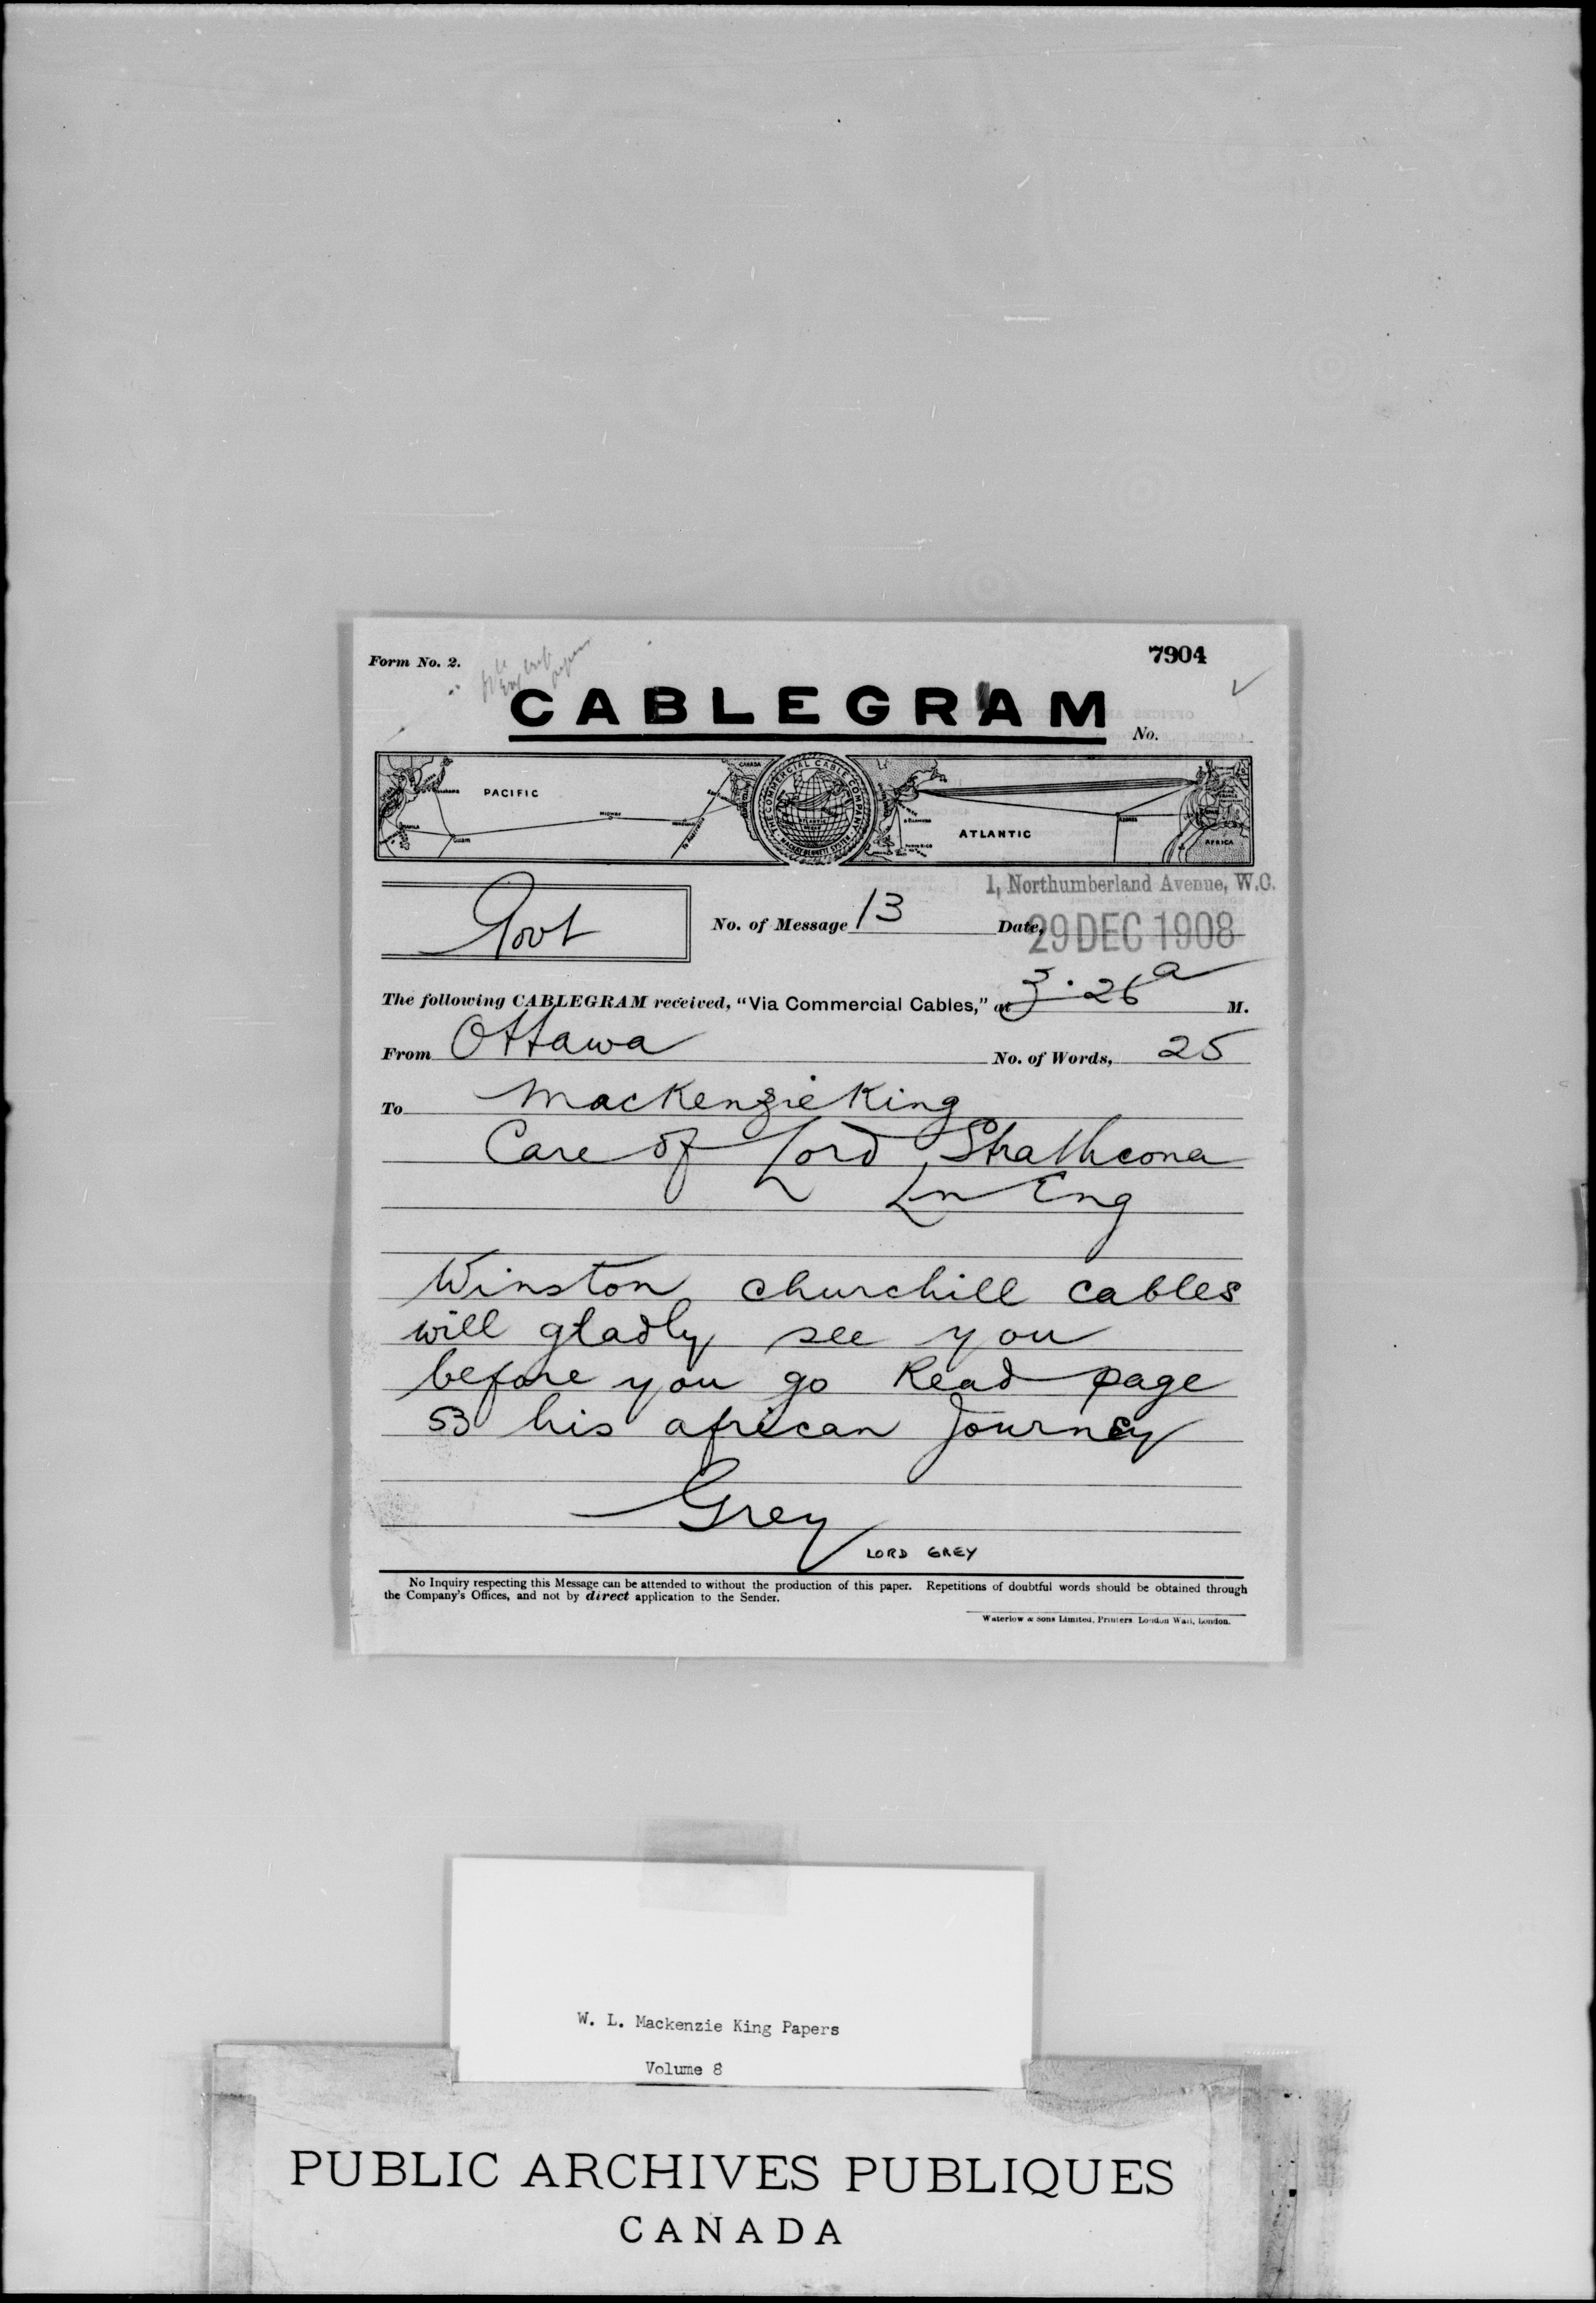 Form No. 2.
7904
CABLEGRAM
No.
PACIFIC
CANADA
MIDWAY
GUAM
MANILA
THE COMMERCIAL CABLE COMPANY
MACKAY BENNETT SYSTEM
ATLANTIC
AZORES
AFRICA
1, Northumberland Avenue, W.C.
Govt
No. of Message 13
Date, 29 DEC 1908
The following CABLEGRAM received, "Via Commercial Cables," at 3.26 a M.
From Ottawa
No. of Words, 25
To Mackenzie King
Care of Lord Strathcona
Ln Eng
Winston churchill cables
will gladly see you
before you go Read page
53 his african Journey
Grey
LORD GREY
No Inquiry respecting this Message can be attended to without the production of this paper. Repetitions of doubtful words should be obtained through
the Company's Offices, and not by direct application to the Sender.
Waterlow & Sons Limited, Printers, London Wall, London.
W. L. Mackenzie King Papers
Volume 8
PUBLIC ARCHIVES PUBLIQUES
CANADA